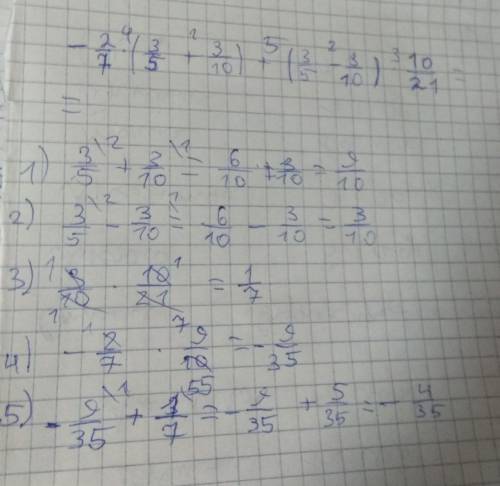 - 2/7 ·⁴ (3/5 +¹ 3/10) +⁵ (3/5 -² 3/10) ·³ 10/21 =
=
1) 3/5\2 + 3/10\1 = 6/10 + 3/10 = 9/10
2) 3/5\2 - 3/10\1 = 6/10 - 3/10 = 3/10
3) ¹3/10₁ · 10¹/21₇ = 1/7
4) - 2¹/7 · 9/10₅ = - 9/35
5) - 9/35\1 + 1/7\5 = - 9/35 + 5/35 = - 4/35